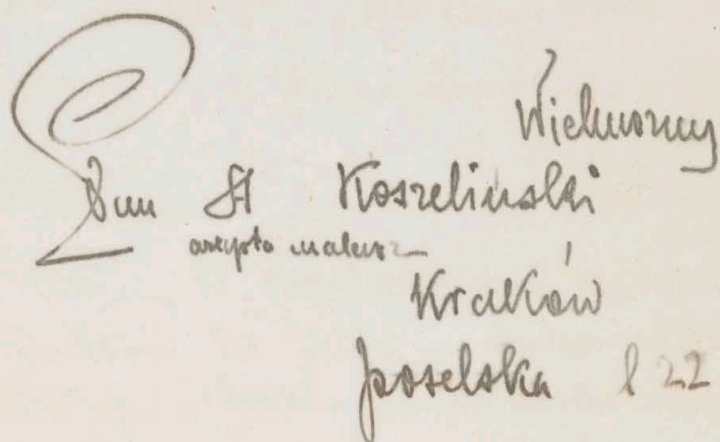 Wielmożny
Pan St Koszeliński
artysta malarz
Kraków
poselska l 22